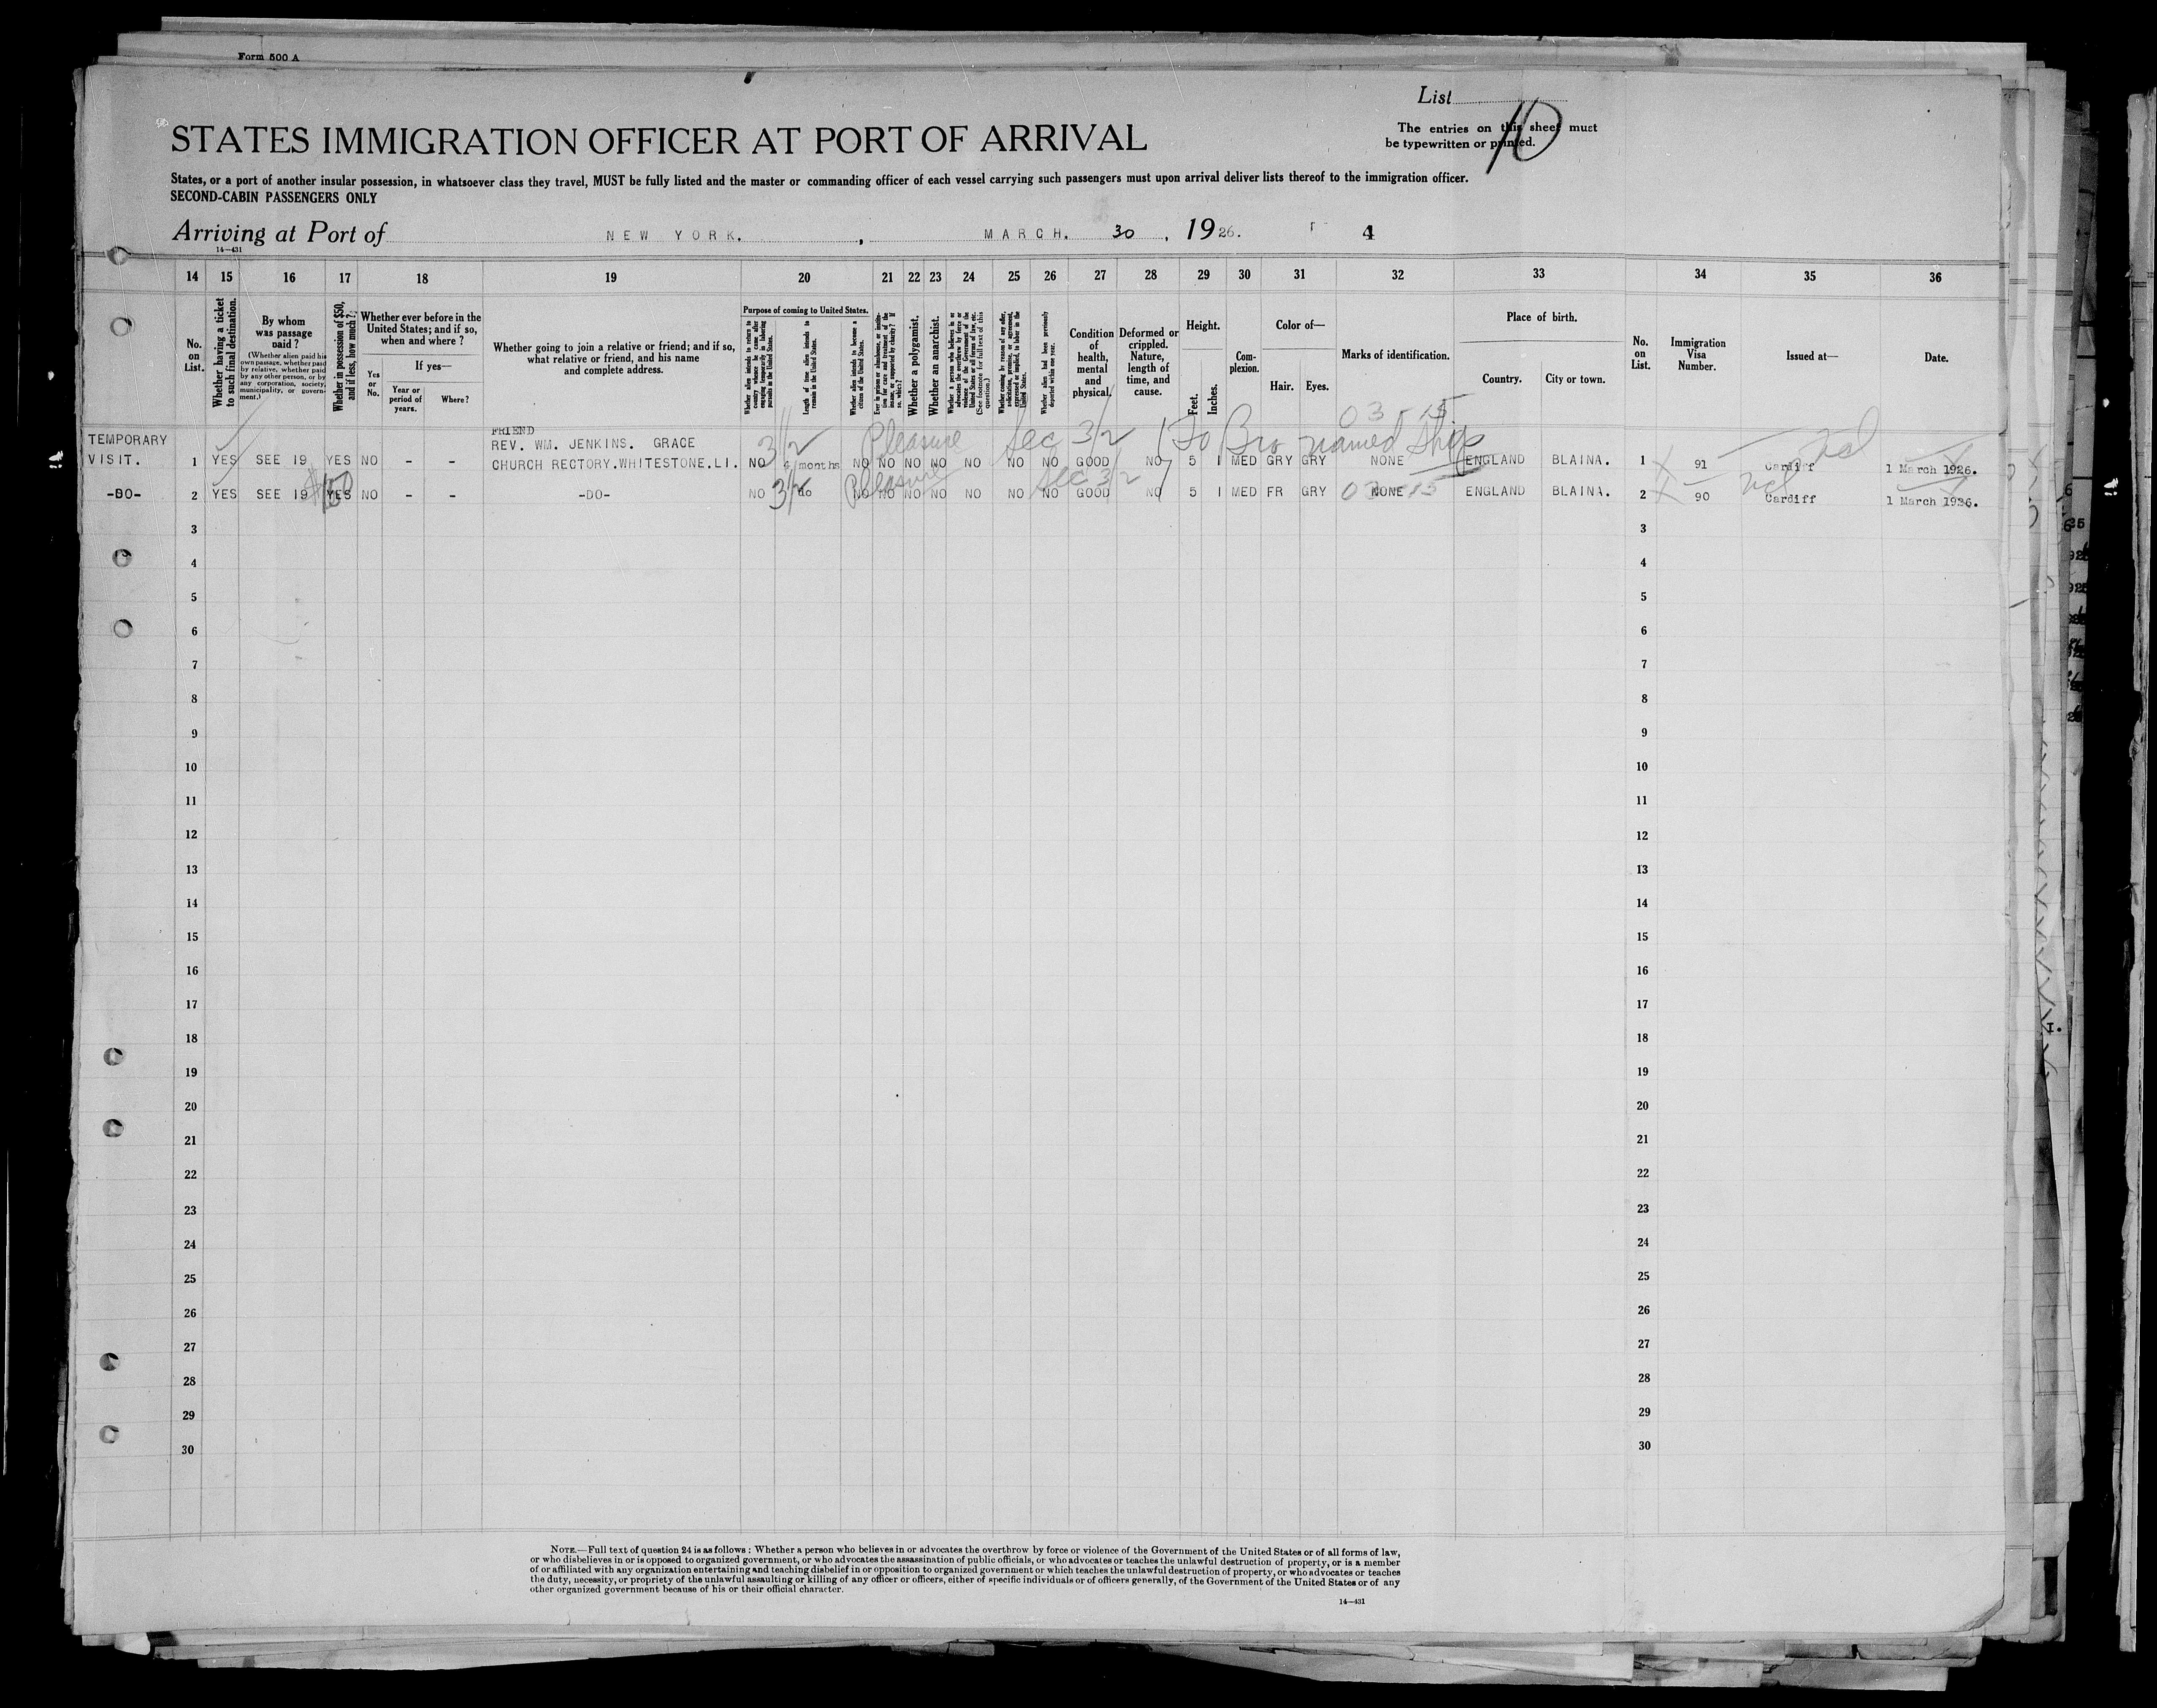 Form 500 A
List
10
The entries on this sheet must
be typewritten or printed.
STATES IMMIGRATION OFFICER AT PORT OF ARRIVAL
States, or a port of another insular possession, in whatsoever class they travel, MUST be fully listed and the master or commanding officer of each vessel carrying such passengers must upon arrival deliver lists thereof to the immigration officer.
SECOND-CABIN PASSENGERS ONLY
Arriving at Port of NEW YORK. , MARCH. 30 , 1926. 4
14—431
14 15 16 17 18 19 20 21 22 23 24 25 26 27 28 29 30 31 32 33 34 35 36
No. on List.
Whether having a ticket to such final destination.
By whom was passage paid?
(Whether alien paid his own passage, whether paid by relative, whether paid by any other person, or by any corporation, society, municipality, or government.)
Whether in possession of $50, and if less, how much?
Whether ever before in the United States; and if so, when and where?
Yes or No.
If yes—
Year or period of years.
Where?
Whether going to join a relative or friend; and if so, what relative or friend, and his name and complete address.
Purpose of coming to United States.
Whether alien intends to return to country whence he came after engaging temporarily in laboring pursuits in the United States.
Length of time alien intends to remain in the United States.
Whether alien intends to become a citizen of the United States.
Ever in prison or almshouse, or institution for care and treatment of the insane, or supported by charity? If so, which?
Whether a polygamist.
Whether an anarchist.
Whether a person who believes in or advocates the overthrow by force or violence of the Government of the United States or all forms of law, etc. (See footnote for full text of this question.)
Whether coming by reason of any offer, solicitation, promise, or agreement, expressed or implied, to labor in the United States.
Whether alien had been previously deported within one year.
Condition of health, mental and physical.
Deformed or crippled. Nature, length of time, and cause.
Height.
Feet. Inches.
Complexion.
Color of—
Hair. Eyes.
Marks of identification.
Place of birth.
Country. City or town.
No. on List.
Immigration Visa Number.
Issued at—
Date.
03 - 15
TEMPORARY FRIEND
REV. WM. JENKINS. GRACE 3/2 Pleasure Sec 3/2 To Bro named Ship
VISIT. 1 YES SEE 19 YES NO - - CHURCH RECTORY.WHITESTONE.LI. NO months NO NO NO NO NO NO NO GOOD NO 5 1 MED GRY GRY NONE ENGLAND BLAINA. 1 91 Cardiff 1 March 1926.
Pleasure Sec 3/2
-DO- 2 YES SEE 19 YES NO - - -DO- NO 3/2 do NO NO NO NO NO NO NO GOOD NO 5 1 MED FR GRY NONE ENGLAND BLAINA. 2 90 Cardiff 1 March 1926.
3 3
4 4
5 5
6 6
7 7
8 8
9 9
10 10
11 11
12 12
13 13
14 14
15 15
16 16
17 17
18 18
19 19
20 20
21 21
22 22
23 23
24 24
25 25
26 26
27 27
28 28
29 29
30 30
NOTE.—Full text of question 24 is as follows: Whether a person who believes in or advocates the overthrow by force or violence of the Government of the United States or of all forms of law,
or who disbelieves in or is opposed to organized government, or who advocates the assassination of public officials, or who advocates or teaches the unlawful destruction of property, or is a member
of or affiliated with any organization entertaining and teaching disbelief in or opposition to organized government or which teaches the unlawful destruction of property, or who advocates or teaches
the duty, necessity, or propriety of the unlawful assaulting or killing of any officer or officers, either of specific individuals or of officers generally, of the Government of the United States or of any
other organized government because of his or their official character.
14—431